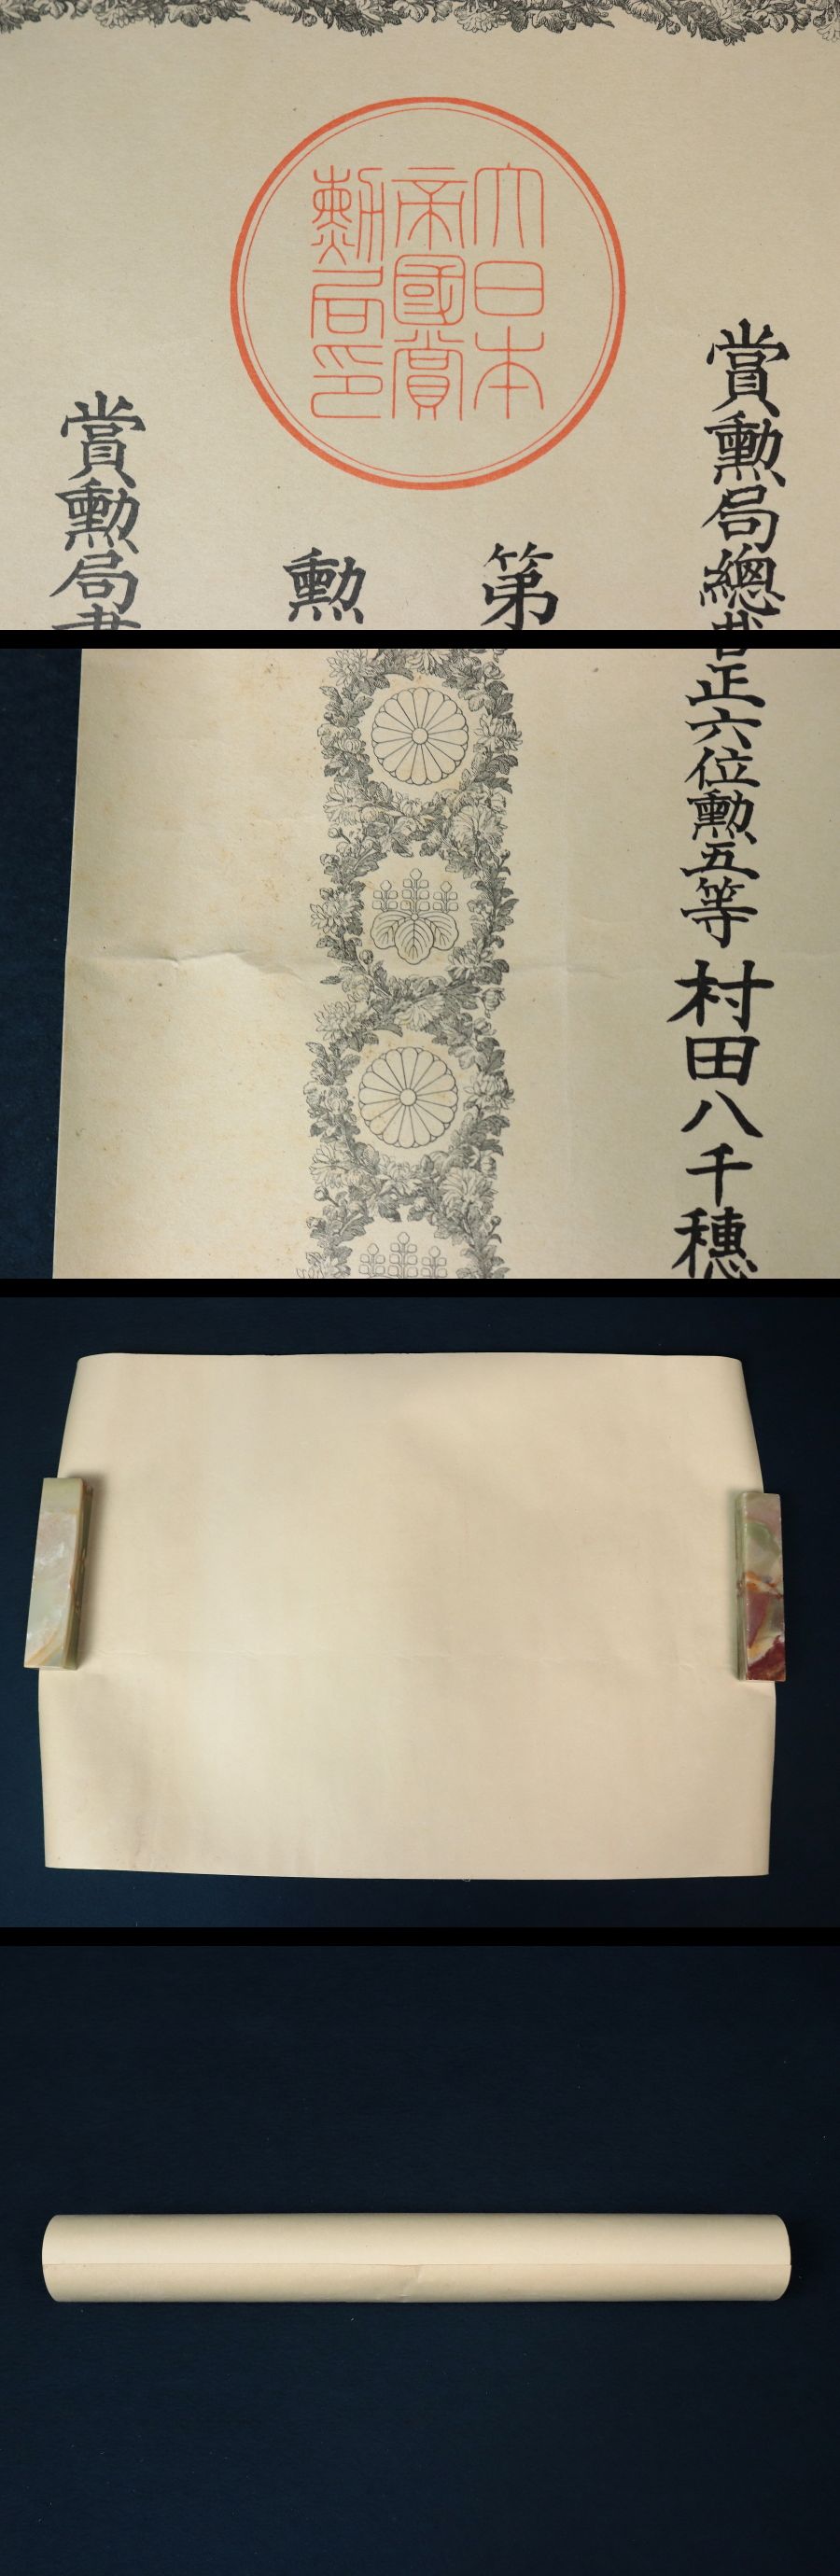 大日本
帝國賞
勳局印
賞勳局總裁正六位勳五等
第
勳
賞勳局書
村田八千穗